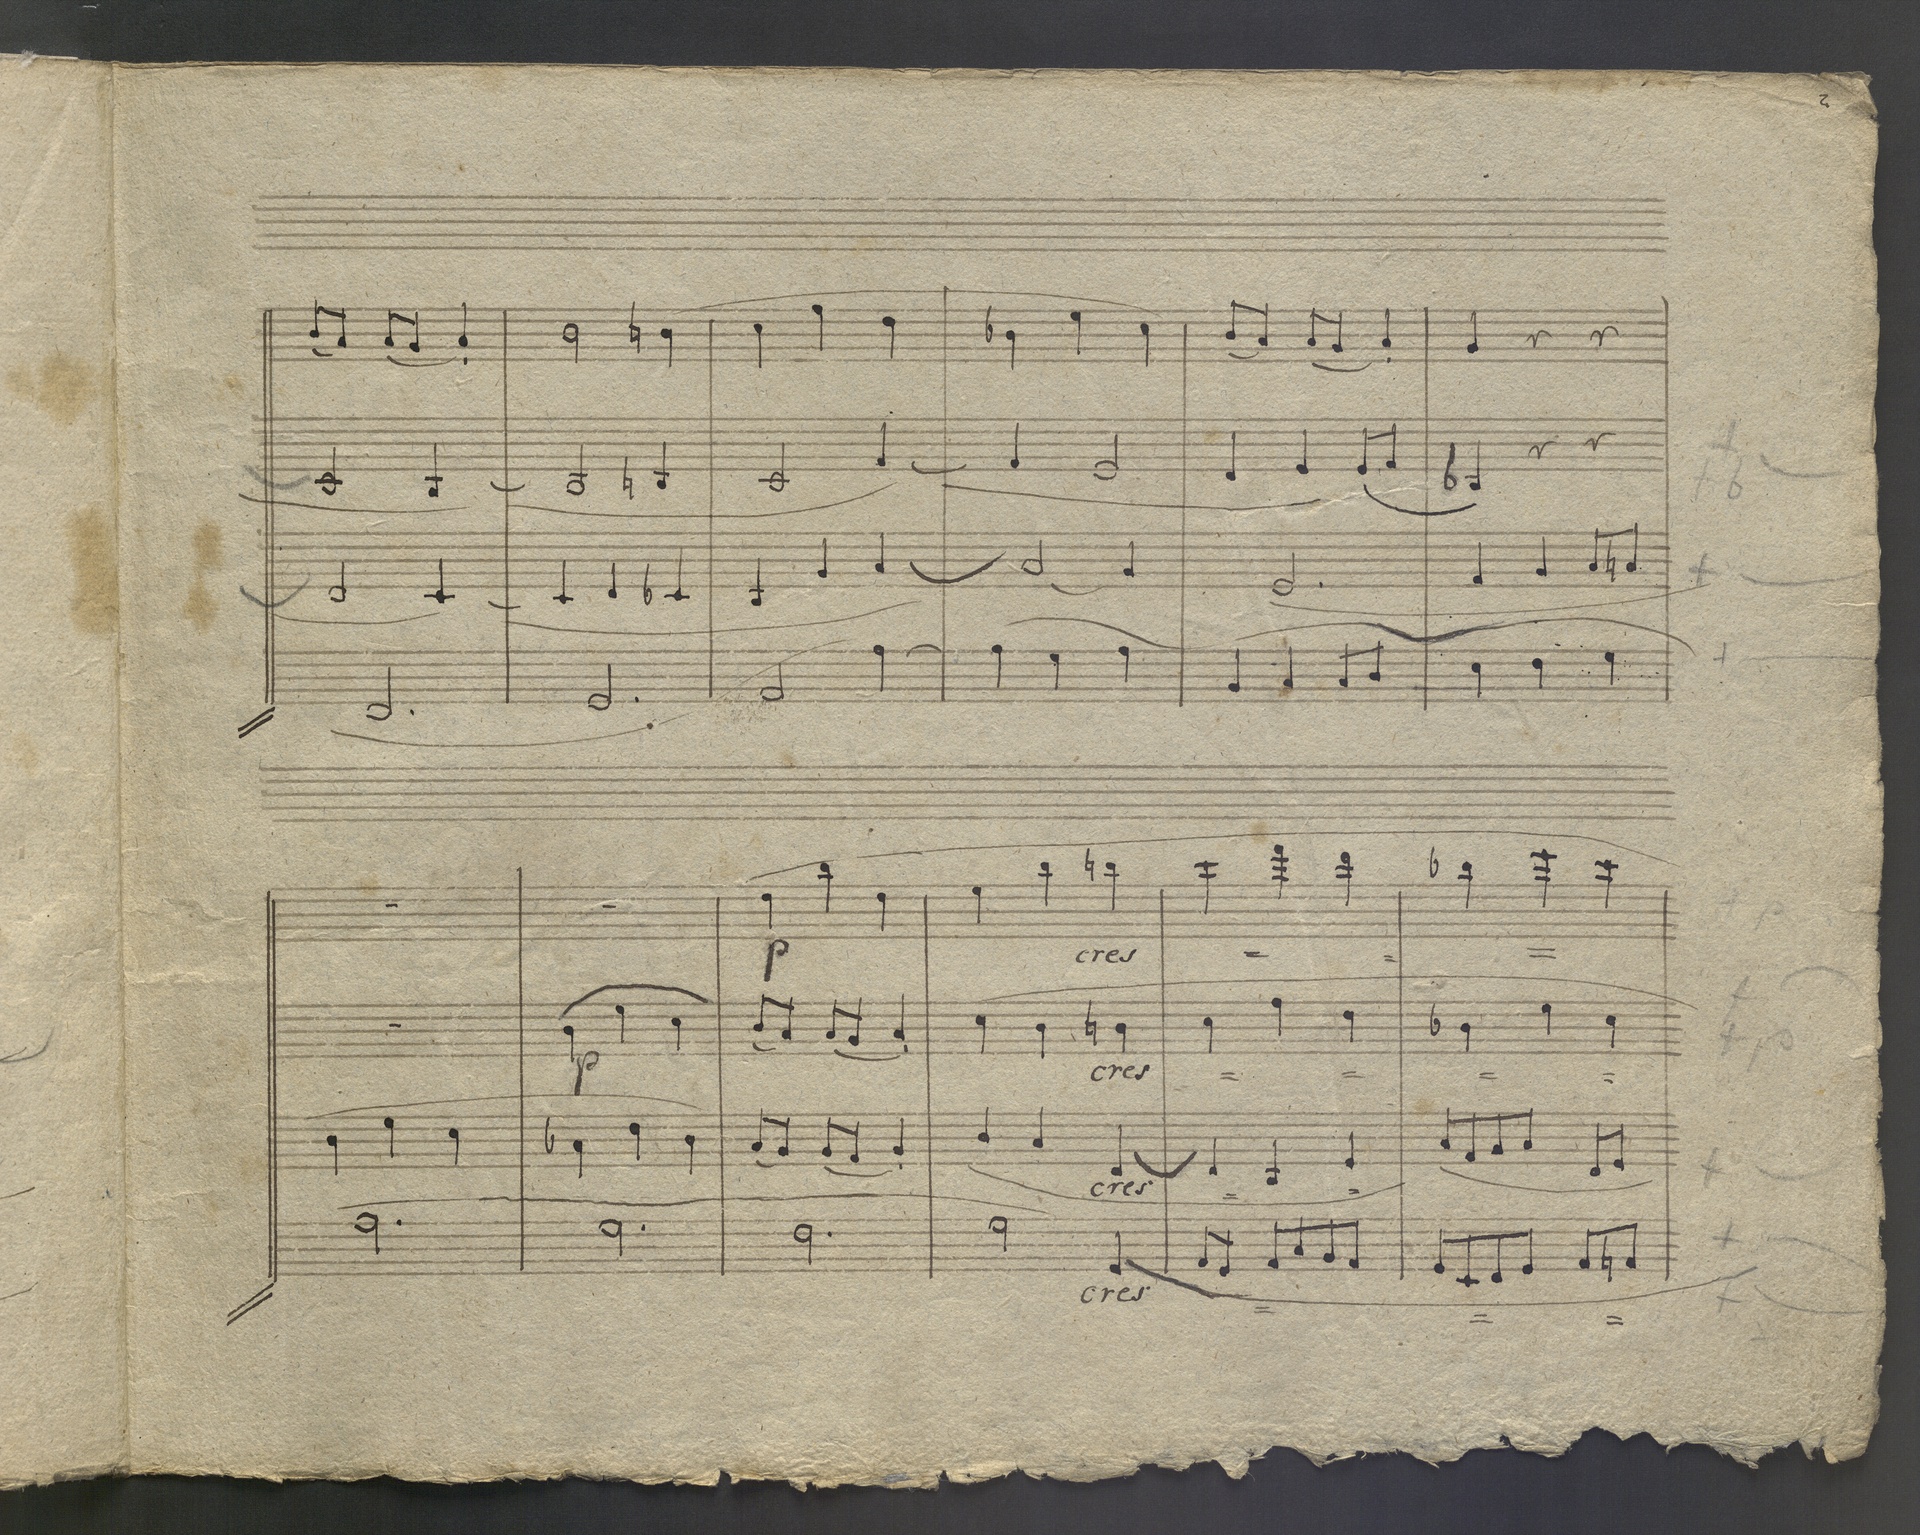 2
p
cres = = =
p
cres = = = =
cres = =
cres = = =